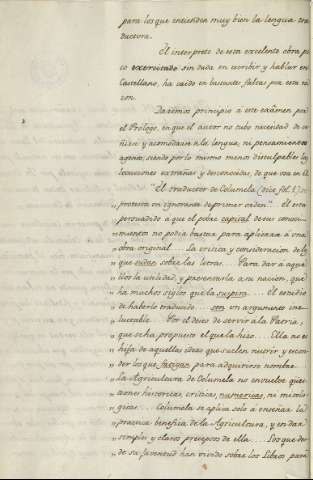 para los que entienden muy bien la lengua tra
ductora.
El interprete de esta excelente obra po
co exercitado sin duda en escribir y hablar en
Castellano, ha caido en bastantes faltas por esta ra
zon.
Daremos principio á este exâmen por
el Prologo, en que el autor no tubo necesidad de ce
ñirse y acomodarse á la lengua, ni pensamientos
agenos; siendo por lo mismo menos disculpables las
locuciones extrañas y desconocidas, de que usa en él.
"El traductor de Columela (dice fol. 1.) se
„ protexta un ignorante de primer orden." El está
persuadido á que el pobre capital de sus conoci-
„ mientos no podia bastar para aplicarse á una
„ obra original... La critica y consideracion de lo
„ que sobre las letras... Para dar á aque
„ llos la utilidad, y presentarla á su nacion, que
„ ha muchos siglos que la suspira... El estudio
„ de haberlo traducido... son un argumento ine
„ luctable. Por el deseo de servir á la Patria,
„ que se ha propuesto el que la hizo... Ella no es
„ hija de aquellas ideas que suelen nutrir y escon
„ der los que para adquirirse nombre.
„ La Agricultura de Columela no envuelve ques
„ tiones historicas, criticas, numericas, ni mitolo
„ gicas... Columela se aplica solo á enseñar la
„ practica benefica de la Agricultura, y en dar
„ simples y claros preceptos de ella... Los que des
„ de su Juventud han vivido sobre los Libros para